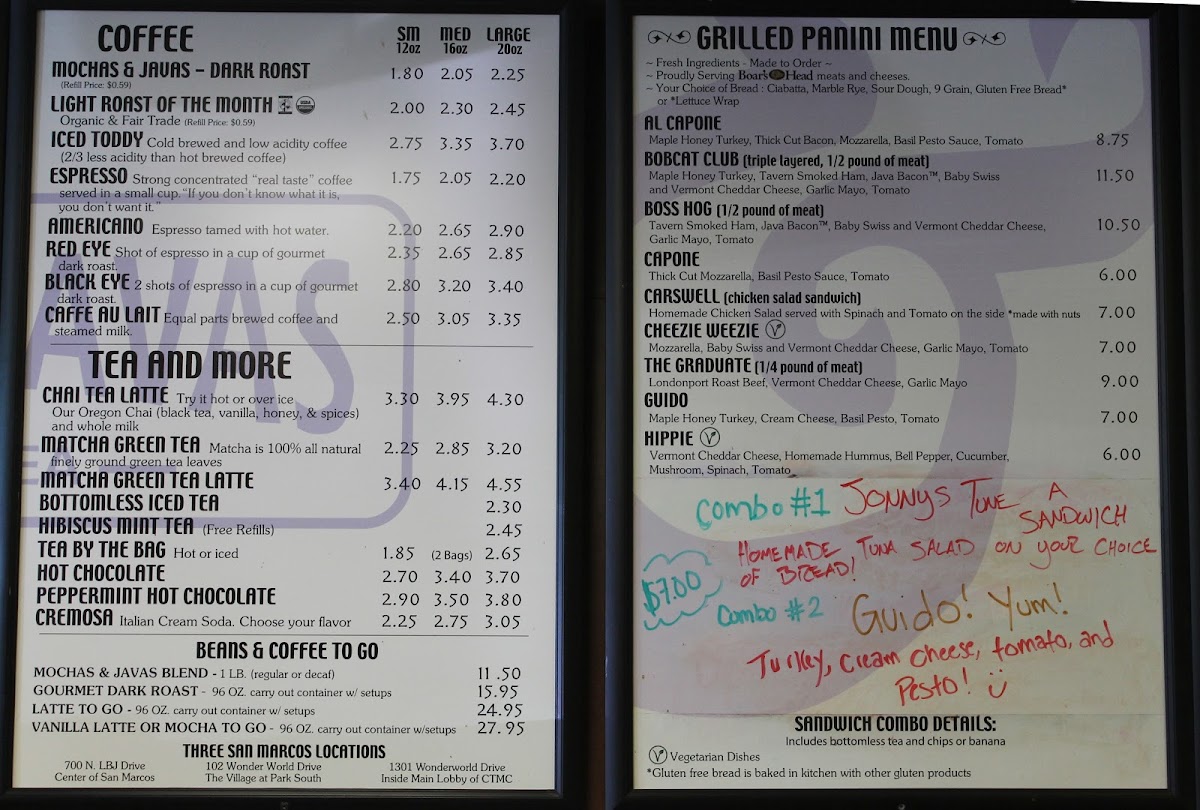 COFFEE
SM MED LARGE
12oz 16oz 20oz
MOCHAS & JAVAS – DARK ROAST 1.80 2.05 2.25
(Refill Price: $0.59)
LIGHT ROAST OF THE MONTH 2.00 2.30 2.45
Organic & Fair Trade (Refill Price: $0.59)
ICED TODDY Cold brewed and low acidity coffee 2.75 3.35 3.70
(2/3 less acidity than hot brewed coffee)
ESPRESSO Strong concentrated "real taste" coffee 1.75 2.05 2.20
served in a small cup. "If you don't know what it is,
you don't want it."
AMERICANO Espresso tamed with hot water. 2.20 2.65 2.90
RED EYE Shot of espresso in a cup of gourmet 2.35 2.65 2.85
dark roast.
BLACK EYE 2 shots of espresso in a cup of gourmet 2.80 3.20 3.40
dark roast.
CAFFE AU LAIT Equal parts brewed coffee and 2.50 3.05 3.35
steamed milk.
TEA AND MORE
CHAI TEA LATTE Try it hot or over ice 3.30 3.95 4.30
Our Oregon Chai (black tea, vanilla, honey, & spices)
and whole milk
MATCHA GREEN TEA Matcha is 100% all natural 2.25 2.85 3.20
finely ground green tea leaves
MATCHA GREEN TEA LATTE 3.40 4.15 4.55
BOTTOMLESS ICED TEA 2.30
HIBISCUS MINT TEA (Free Refills) 2.45
TEA BY THE BAG Hot or iced 1.85 (2 Bags) 2.65
HOT CHOCOLATE 2.70 3.40 3.70
PEPPERMINT HOT CHOCOLATE 2.90 3.50 3.80
CREMOSA Italian Cream Soda. Choose your flavor 2.25 2.75 3.05
BEANS & COFFEE TO GO
MOCHAS & JAVAS BLEND - 1 LB. (regular or decaf) 11.50
GOURMET DARK ROAST - 96 OZ. carry out container w/ setups 15.95
LATTE TO GO - 96 OZ. carry out container w/ setups 24.95
VANILLA LATTE OR MOCHA TO GO - 96 OZ. carry out container w/setups 27.95
THREE SAN MARCOS LOCATIONS
700 N. LBJ Drive 102 Wonder World Drive 1301 Wonderworld Drive
Center of San Marcos The Village at Park South Inside Main Lobby of CTMC
AVAS
GRILLED PANINI MENU
~ Fresh Ingredients - Made to Order ~
~ Proudly Serving Boar's Head meats and cheeses.
~ Your Choice of Bread : Ciabatta, Marble Rye, Sour Dough, 9 Grain, Gluten Free Bread*
or *Lettuce Wrap
AL CAPONE
Maple Honey Turkey, Thick Cut Bacon, Mozzarella, Basil Pesto Sauce, Tomato 8.75
BOBCAT CLUB (triple layered, 1/2 pound of meat)
Maple Honey Turkey, Tavern Smoked Ham, Java Bacon™, Baby Swiss 11.50
and Vermont Cheddar Cheese, Garlic Mayo, Tomato
BOSS HOG (1/2 pound of meat)
Tavern Smoked Ham, Java Bacon™, Baby Swiss and Vermont Cheddar Cheese, 10.50
Garlic Mayo, Tomato
CAPONE
Thick Cut Mozzarella, Basil Pesto Sauce, Tomato 6.00
CARSWELL (chicken salad sandwich)
Homemade Chicken Salad served with Spinach and Tomato on the side *made with nuts 7.00
CHEEZIE WEEZIE V
Mozzarella, Baby Swiss and Vermont Cheddar Cheese, Garlic Mayo, Tomato 7.00
THE GRADUATE (1/4 pound of meat)
Londonport Roast Beef, Vermont Cheddar Cheese, Garlic Mayo 9.00
GUIDO
Maple Honey Turkey, Cream Cheese, Basil Pesto, Tomato 7.00
HIPPIE V
Vermont Cheddar Cheese, Homemade Hummus, Bell Pepper, Cucumber, 6.00
Mushroom, Spinach, Tomato
Combo #1 JONNYS TUNE A
SANDWICH
HOMEMADE TUNA SALAD ON YOUR CHOICE
OF BREAD!
$7.00
Combo #2 Guido! Yum!
Turkey, cream cheese, tomato, and
Pesto!
SANDWICH COMBO DETAILS:
Includes bottomless tea and chips or banana
V Vegetarian Dishes
*Gluten free bread is baked in kitchen with other gluten products